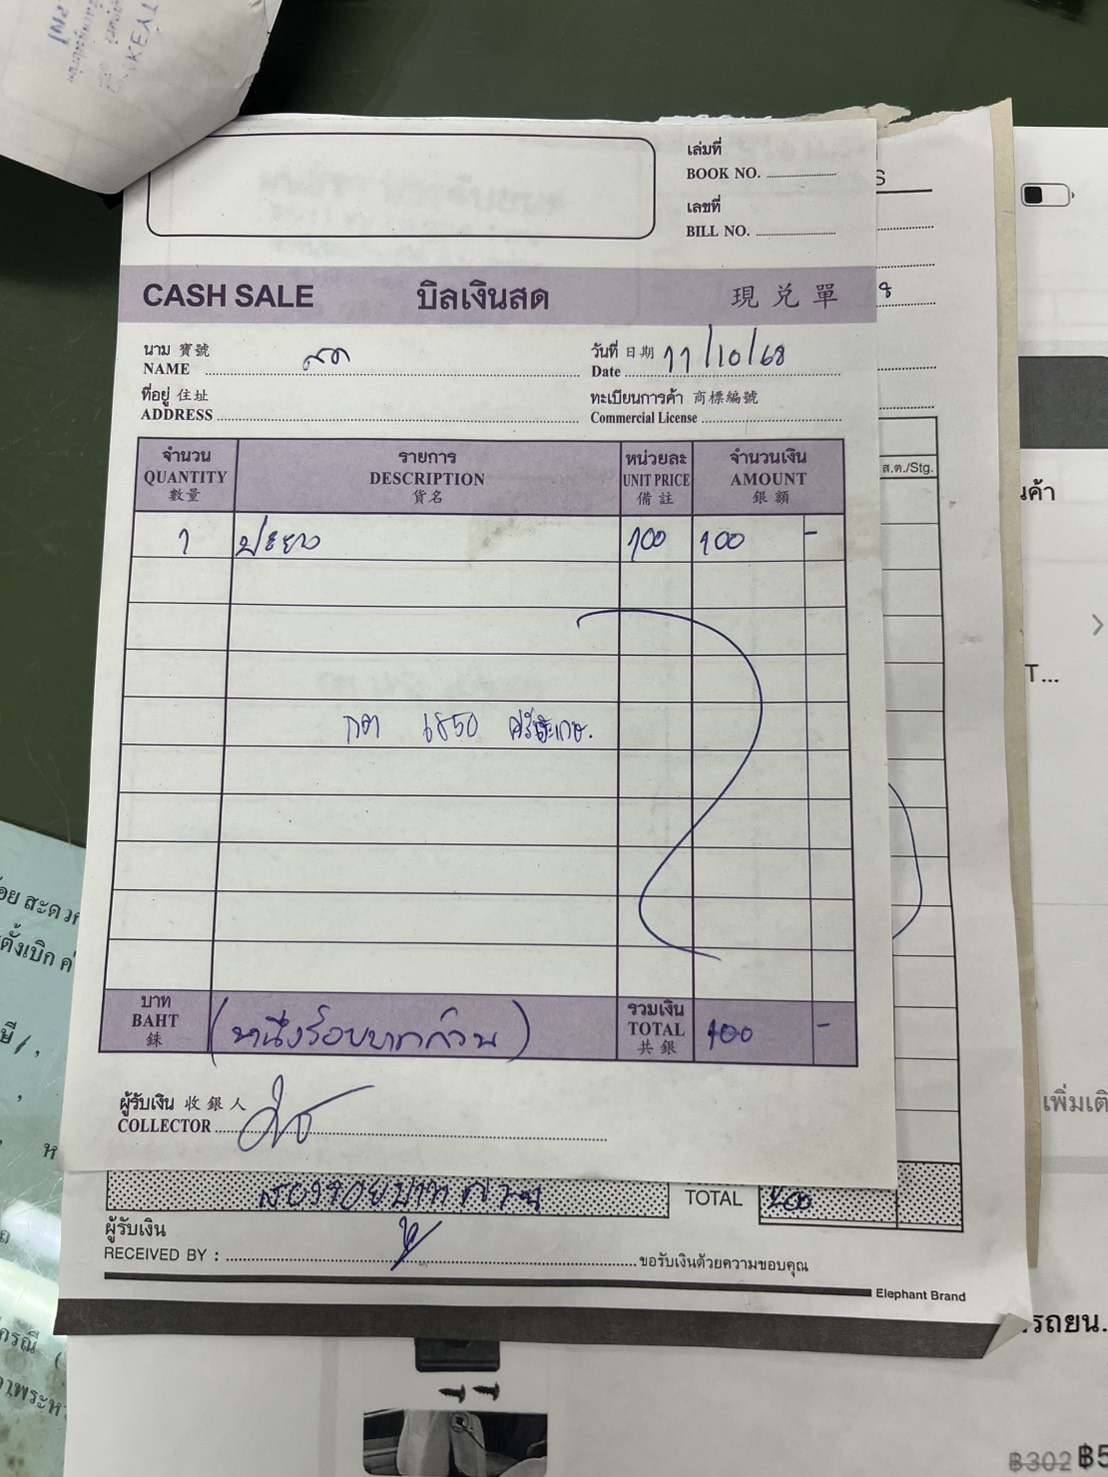 เล่มที่
BOOK NO.
เลขที่
BILL NO.
S
8
CASH SALE บิลเงินสด 現兌單
นาม 寶號
NAME สด
วันที่ 日期
Date 11/10/68
ที่อยู่ 住址
ADDRESS
ทะเบียนการค้า 商標編號
Commercial License
จำนวน รายการ หน่วยละ จำนวนเงิน
QUANTITY DESCRIPTION UNIT PRICE AMOUNT
數量 貨名 備註 銀額
ส.ต./Stg.
1 ปะยาง 100 100 -
กต 6850 ศรีสะเกษ.
บาท
BAHT
銖
(หนึ่งร้อยบาทถ้วน)
รวมเงิน
TOTAL
共銀
100 -
ผู้รับเงิน 收銀人
COLLECTOR
สองร้อยบาทถ้วน TOTAL 200
ผู้รับเงิน
RECEIVED BY : ขอรับเงินด้วยความขอบคุณ
Elephant Brand
T...
เพิ่มเติ
รถยน.
฿302 ฿5